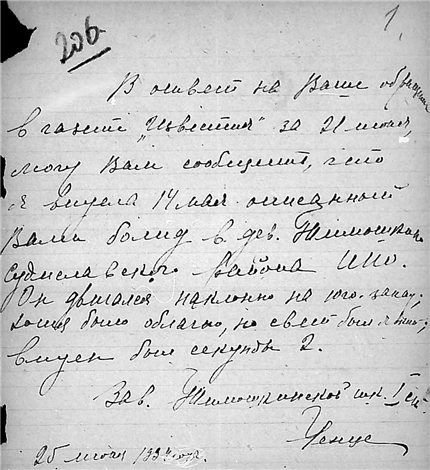 1.
206.
В ответ на Ваше обращение
в газете „Известия" за 21 июня,
могу Вам сообщить, что
я видела 14 мая описанный
Вами болид в дев. Тимошкино
Судиславского района ИПО.
Он двигался наклонно на юго-запад,
хотя было облачно, но свет был
виден был секунды 2.
Зав. Тимошкинской шк. I ст.
25 июня 1934 года.